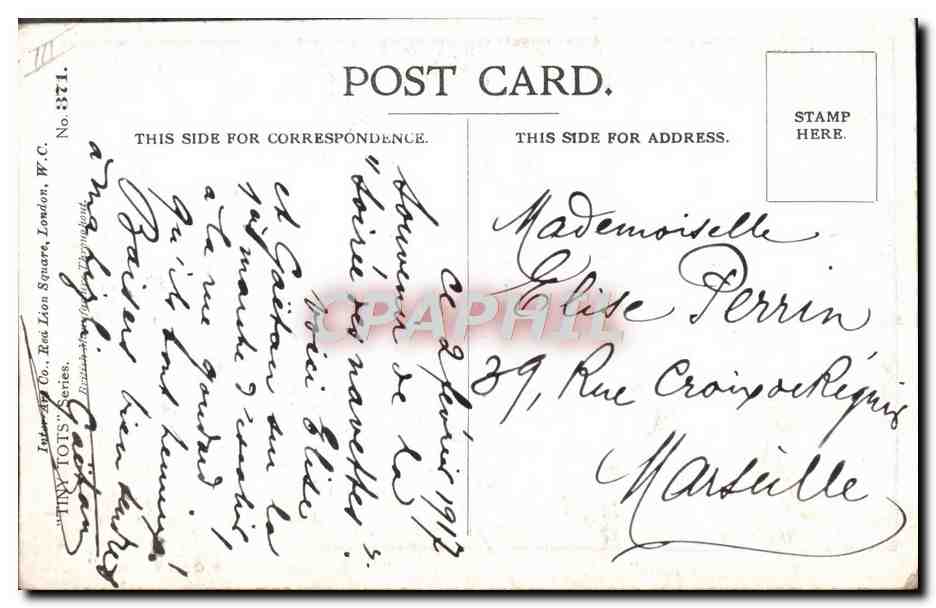 POST CARD.
THIS SIDE FOR CORRESPONDENCE.
THIS SIDE FOR ADDRESS.
STAMP
HERE.
Mademoiselle
Elise Perrin
39, Rue Croix de Régnier
Marseille
Ce 2 février 1917
Souvenir de la
"Soirée des navettes".
Voici Elise
et Gaëtan sur la
marche d'escalier,
à la rue Goudard
Qu'ils sont
Baisers bien tendres
à ma
Gaëtan
No. 371.
British Manufacture Throughout.
"TINY TOTS" Series.
Inter-Art Co., Red Lion Square, London, W.C.
CPAPHIL